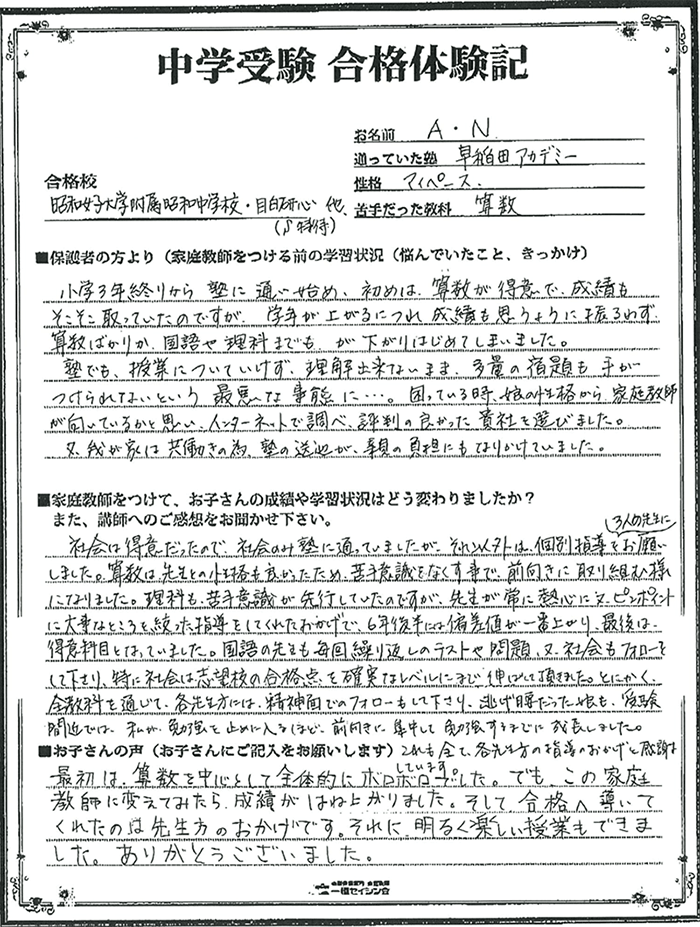 中学受験 合格体験記
お名前 A・N
通っていた塾 早稲田アカデミー
合格校
性格 マイペース。
昭和女子大学附属昭和中学校・目白研心 他、
苦手だった教科 算数
特待)
■保護者の方より(家庭教師をつける前の学習状況(悩んでいたこと、きっかけ)
小学3年終りから 塾に通い始め、初めは、算数が得意で、成績も
そこそこ取っていたのですが、学年が上がるにつれ成績も思うように振るわず、
算数ばかりか、国語や理科までも、が下がりはじめてしまいました。
塾でも、授業についていけず、理解出来ないまま、多量の宿題も手が
つけられないという 最悪な事態に…。困っている時、娘の性格から、家庭教師
が向いているかと思い、インターネットで調べ、評判の良かった貴社を選びました。
又、我が家は共働きの為、塾の送迎が、親の負担にもなりかけていました。
■家庭教師をつけて、お子さんの成績や学習状況はどう変わりましたか?
また、講師へのご感想をお聞かせ下さい。
3人の先生に
社会は得意だったので、社会のみ塾に通っていましたが、それ以外は、個別指導をお願い
しました。算数は、先生との性格も良かったため、苦手意識をなくす事で、前向きに取り組む様
になりました。理科も、苦手意識が先行していたのですが、先生が常に熱心に又、ピンポイント
に大事なところを絞った指導をしてくれたおかげで、6年後半には偏差値が一番上がり、最後は、
得意科目となっていました。国語の先生も毎回繰り返しのテストや問題、又、社会もフォローを
して下さり、特に社会は志望校の合格点を確実なレベルにまで伸ばして頂きました。とにかく、
全教科を通じて、各先生方には、精神面でのフォローもして下り、逃げ腰だった娘も、受験
間近では、私が、勉強を止めに入るほど、前向きに集中して勉強するまでに成長しました。
■お子さんの声(お子さんにご記入をお願いします)
これも全て、各先生方の指導のおかげと感謝
しています
最初は、算数を中心として全体的にボロボロでした。でも、この家庭
教師に変えてみたら、成績がはね上がりました。そして、合格へ導いて
くれたのは先生方のおかげです。それに、明るく楽しい授業もできま
した。ありがとうございました。
一橋セイシン会